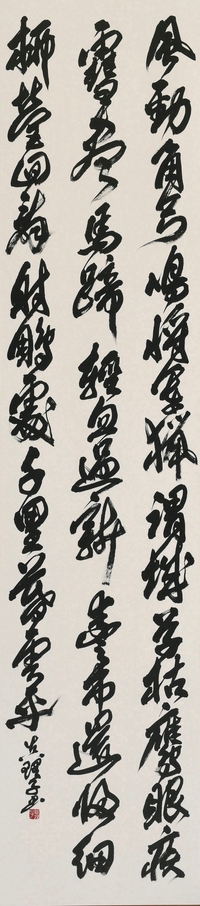 風勁角弓鳴將軍獵渭城草枯鷹眼疾
雪盡馬蹄輕忽過新豐市還歸細
柳營回看射鵰處千里暮雲平